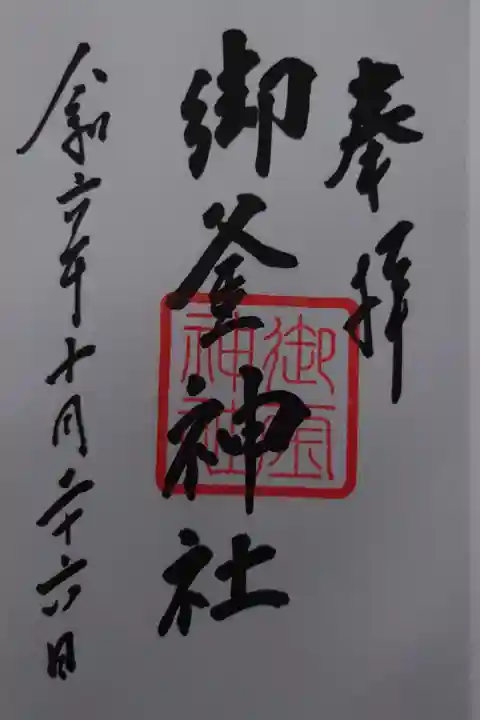 奉拝
御釜神社
御釜
神社
令和六年十月二十六日